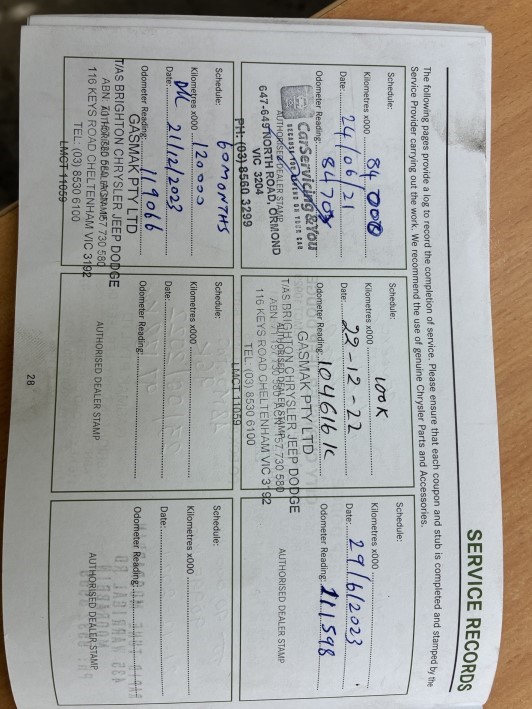 SERVICE RECORDS
The following pages provide a log to record the completion of service. Please ensure that each coupon and stub is completed and stamped by the
Service Provider carrying out the work. We recommend the use of genuine Chrysler Parts and Accessories.
Schedule:
Kilometres x000 84 000
Date: 24/06/21
Odometer Reading: 84703
CarServicing&You
AUTHORISED DEALER STAMP
647-649 NORTH ROAD, ORMOND
VIC 3204
PH: (03) 8560 3299
Schedule: 100K
Kilometres x000
Date: 22-12-22
Odometer Reading: 104616 K
GASMAK PTY LTD
T/AS BRIGHTON CHRYSLER JEEP DODGE
AUTHORISED DEALER STAMP
116 KEYS ROAD CHELTENHAM VIC 3192
TEL: (03) 8530 6100
LMCT 11059
Schedule:
Kilometres x000
Date: 29/6/2023
Odometer Reading: 111598
AUTHORISED DEALER STAMP
Schedule: 60MONTHS
Kilometres x000 120000
Date: 21/12/2023
Odometer Reading: 119066
GASMAK PTY LTD
T/AS BRIGHTON CHRYSLER JEEP DODGE
116 KEYS ROAD CHELTENHAM VIC 3192
TEL: (03) 8530 6100
LMCT 11059
Schedule:
Kilometres x000
Date:
Odometer Reading:
AUTHORISED DEALER STAMP
Schedule:
Kilometres x000
Date:
Odometer Reading:
AUTHORISED DEALER STAMP
28